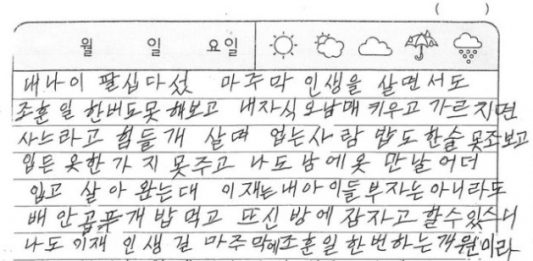 ( )
월 일 요일
내나이 팔십다섰 마주막 인생을 살면서도
조훈일 한버도못해보고 내자식 오남매 키우고 가르지면
사느라고 힘들개 살며 업는사람 밥도 한술 못조보고
입든 옷한가지 못주고 나도 남에옷 만날 어더
입고 살아 왔는대 이재는내아이들 부자는 아니라도
배 안곱푸개 밥먹고 뜨신 방에 잠자고 할수있스니
나도 이재 인생 길 마주막에조훈일 한번하는개 원이라